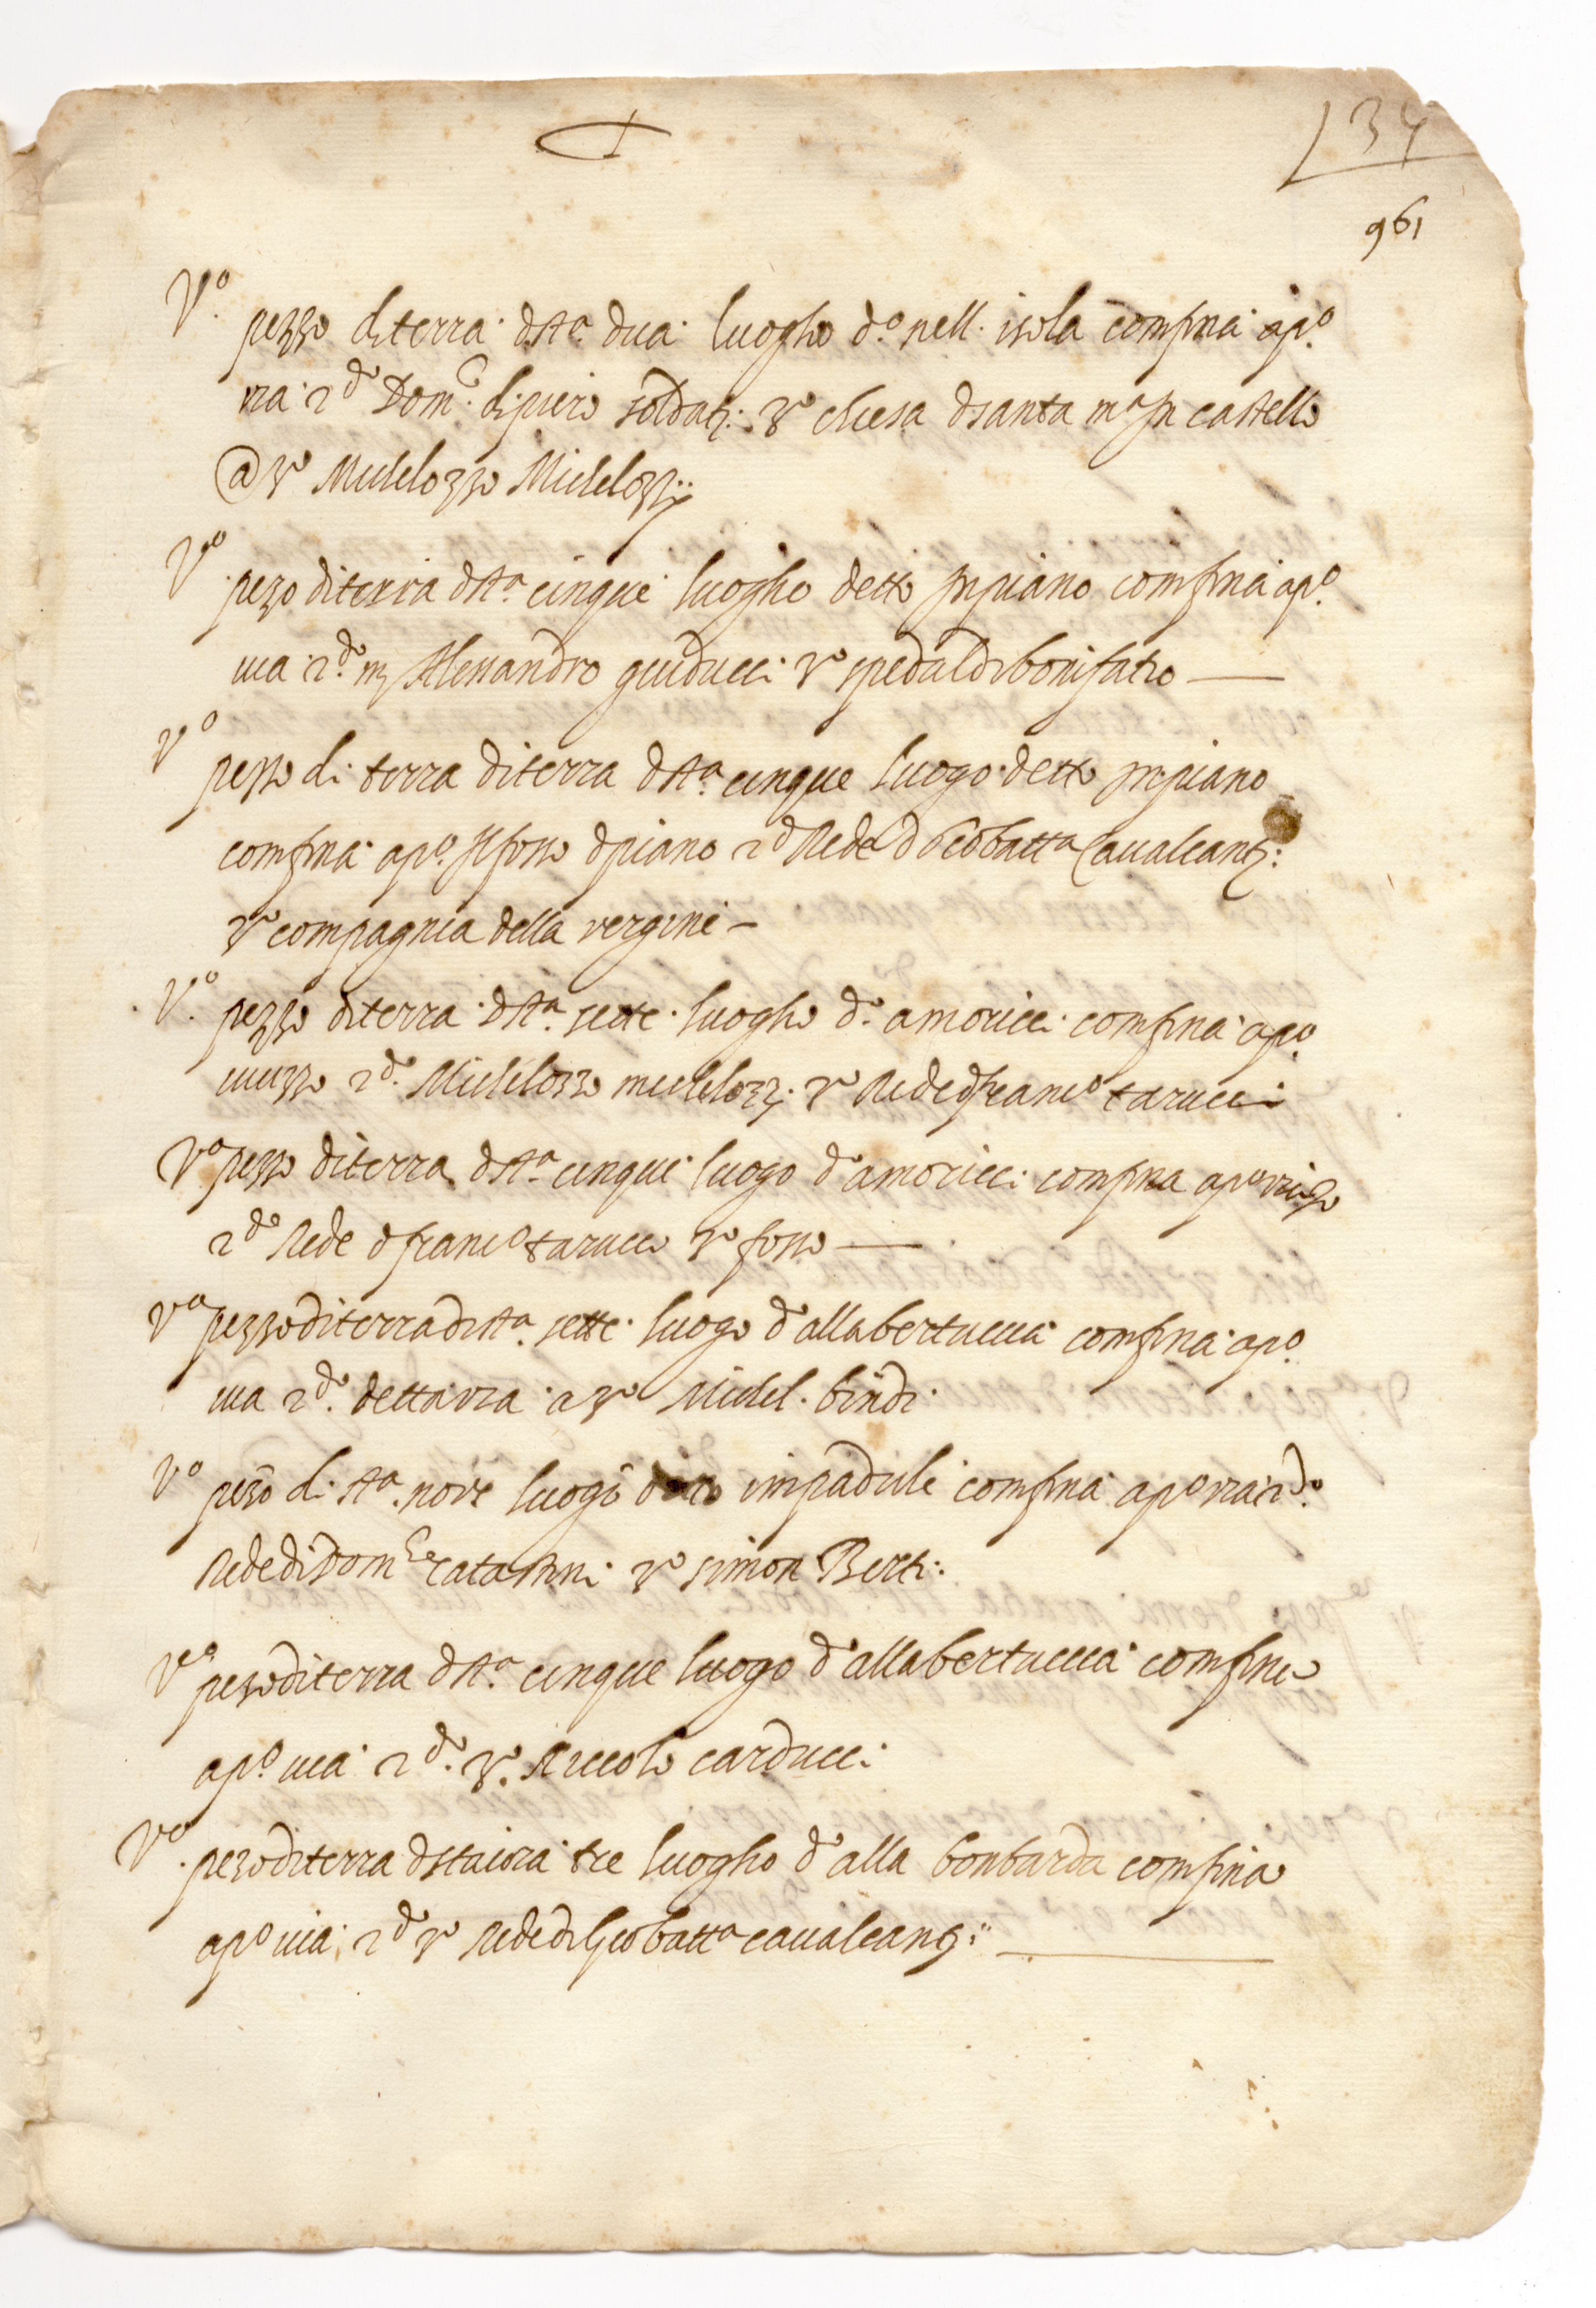 34
961
Vº
pezzo di terra dstª dua luogho dº nell isola confina apº
via 2dº Domco di piero soldati 3º chiesa dsanta mª in castello
@ 3º Michelozzo Michelozzi
Vº
pezo di terra dstª cinque luogho detto in piano confina apº
via 2dº mr Alessandro guiducci 3º spedal di bonifatio
Vº
pezzo di terra di terra dstª cinque luogo detto in piano
confina apº Il fosso dpiano 2d Rede d Giobattª Cavalcanti
3º compagnia della vergine
Vº pezzo diterra dstª sette luogho dº amoricci confina apº
2dº Michelozzo michelozzi 3º Rede dfrancº tarucci
Vº pezzo diterra dstª cinque luogo dº amoricci confina apº
2dº Rede d francº tarucci 3º fosso
Vº pezzo di terra distª sette luogo dº alla bertuccia confina apº
via 2dº detta via a 3º Michel bindi
Vº pezo di stª nove luogo detto impadule confina apº via 2dº
Rede di Domco catastini 3º simon Berti
Vº pezo diterra dstª cinque luogo dº alla bertuccia confina
apº via 2dº 3º Niccolo carducci
Vº pezo diterra dstaiora tre luogho dº alla bonbarda confina
apº via 2d 3º Rede di Giobattª cavalcanti